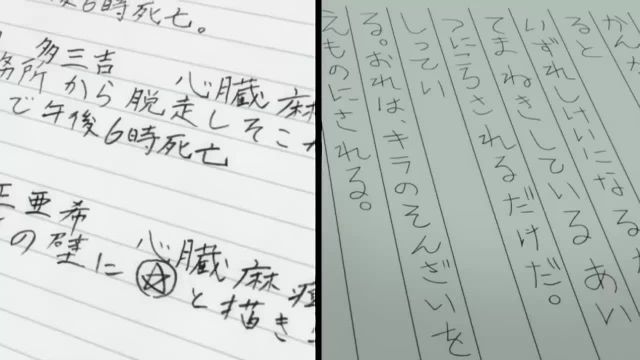 後6時死亡。
多三吉　心臓麻
務所から脱走しそこ
で午後6時死亡
亜希　心臓麻痺
の壁に☆と描き
かんが
ると
いずれしけいになるか
てまねきしているあい
つにころされるだけだ。
しってい
る。おれは、キラのそんざいを
えものにされる。